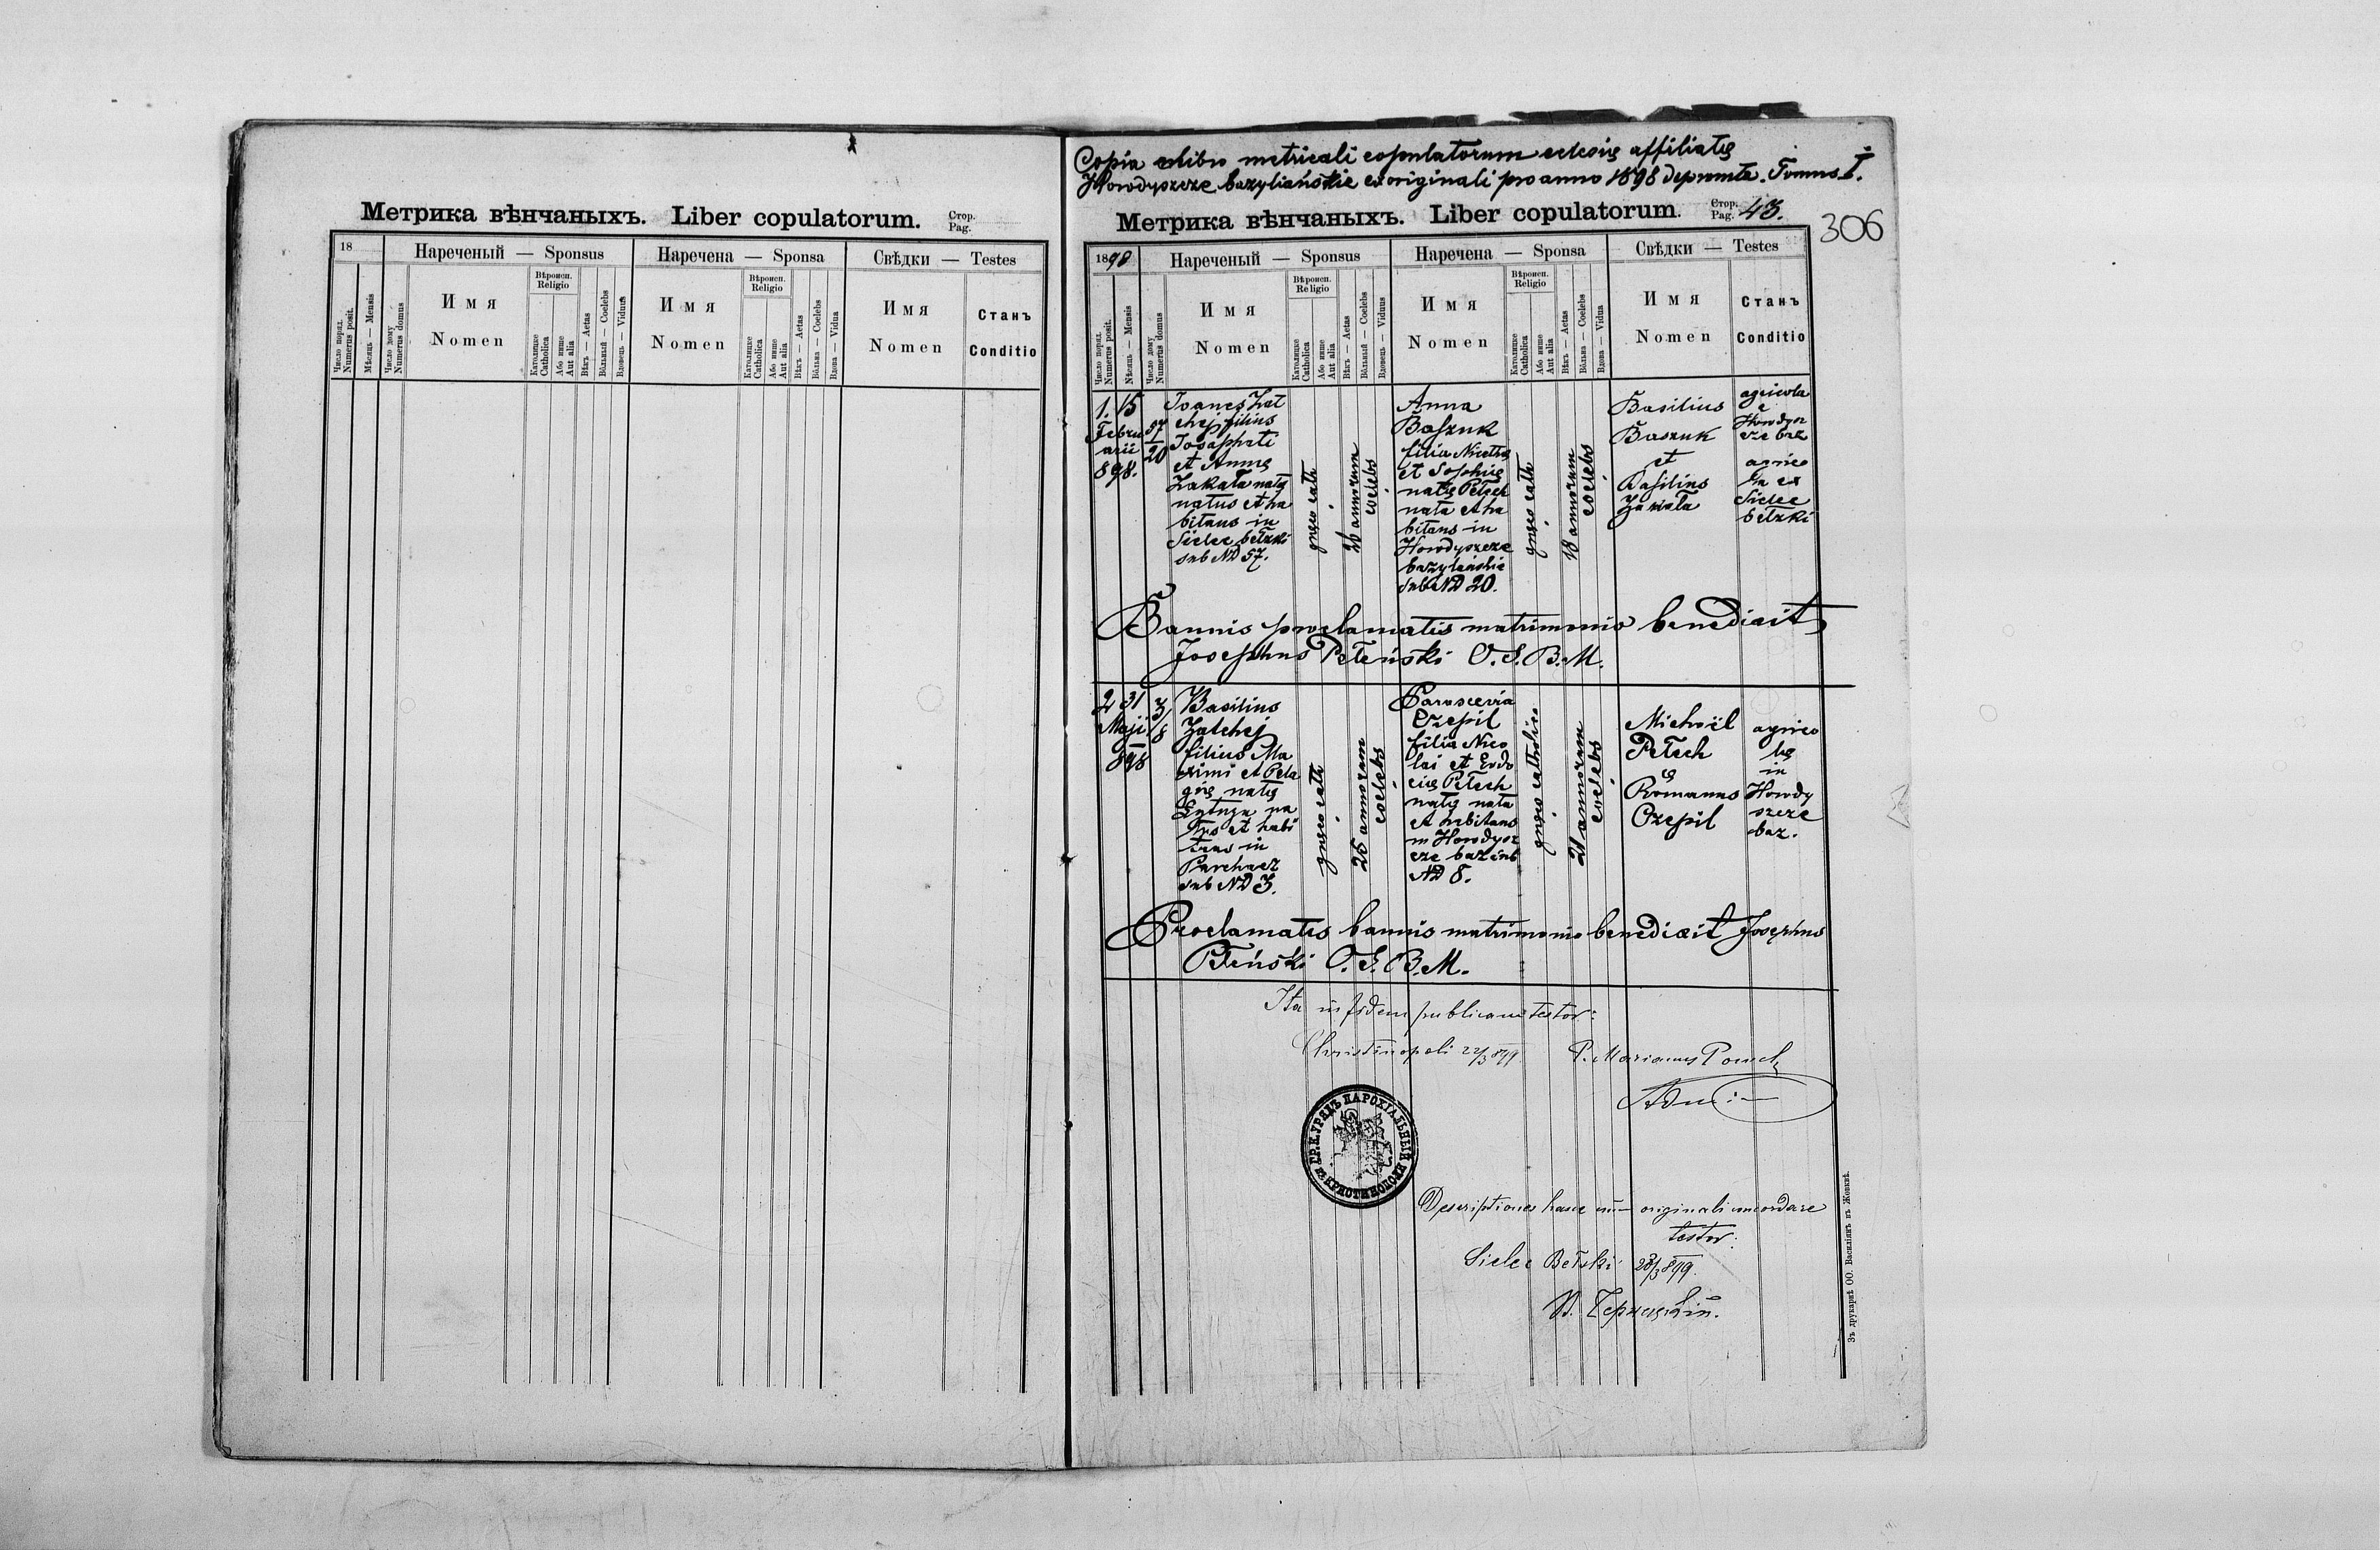 Метрика вѣнчаныхъ. Liber copulatorum. Стор. Pag.
18
Нареченый — Sponsus
Наречена — Sponsa
Свѣдки — Testes
Число поряд. Numerus posit.
Мѣсяць — Mensis
Число дому Numerus domus
Имя
Nomen
Вѣроисп. Religio
Католицке Catholica
Або инше Aut alia
Вѣкъ — Aetas
Вôльный — Coelebs
Вдовець — Viduus
Имя
Nomen
Вѣроисп. Religio
Католицке Catholica
Або инше Aut alia
Вѣкъ — Aetas
Вôльна — Coelebs
Вдова — Vidua
Имя
Nomen
Станъ
Conditio
Copia e libro metricali copulatorum eclesię affiliatę
Horodyszcze bazyliańskie ex originali pro anno 1898 deprompta. Tomus I.
Метрика вѣнчаныхъ. Liber copulatorum. Стор. Pag. 43.
306
1898
Нареченый — Sponsus
Наречена — Sponsa
Свѣдки — Testes
Число поряд. Numerus posit.
Мѣсяць — Mensis
Число дому Numerus domus
Имя
Nomen
Вѣроисп. Religio
Католицке Catholica
Або инше Aut alia
Вѣкъ — Aetas
Вôльный — Coelebs
Вдовець — Viduus
Имя
Nomen
Вѣроисп. Religio
Католицке Catholica
Або инше Aut alia
Вѣкъ — Aetas
Вôльна — Coelebs
Вдова — Vidua
Имя
Nomen
Станъ
Conditio
1. 15
Febru
arii
898.
57
20
Joanes Zat
chej filius
Josaphati
et Annę
Zakała natę
natus et ha
bitans in
Sielec bełzki
sub ND 57.
gręco cath
26 annorum
coelebs
Anna
Baszuk
filia Nicetę
et Sophię
natę Pełech
nata et ha
bitans in
Horodyszcze
bazyliańskie
sub ND 20.
gręco cath
18 annorum
coelebs
Basilius
Baszuk
et
Basilius
Zakała
agricola
e
Horodysz
cze baz
agrico
la ex
Sielec
bełzki
Bannis proclamatis matrimonio benedixit
Josephus Pełeński O.S.B.M.
2 31
Maji
898
3
8
Basilius
Zatchej
filius Ma
ximi et Pela
gię natę
na
tus et habi
tans in
Parchacz
sub ND 3.
gręco cath
25 annorum
coelebs
Parascevia
Czepil
filia Nico
lai et Evdo
cię Pełech
natę nata
et habitans
in Horodysz
cze baz sub
ND 8.
gręco catholica
21 annorum
coelebs
Michaël
Pełech
Romanus
Czepil
agrico
lę
in
Horody
szcze
baz.
Proclamatis bannis matrimonio benedixit Josephus
Pełeński O.S.B.M.
Ita in fidem publicam testor:
Christinopoli 22/3 899 P. Marianus
Adm:
ГР.К.УРЯДЪ ПАРОХІАЛЬНЫЙ ВЪ КРИСТИНОПОЛИ
Descriptionem hanc cum originali concordare
testor:
Sielec Bełzki 28/3 899.
Зъ друкарнѣ ОО. Василіянъ въ Жовквѣ.